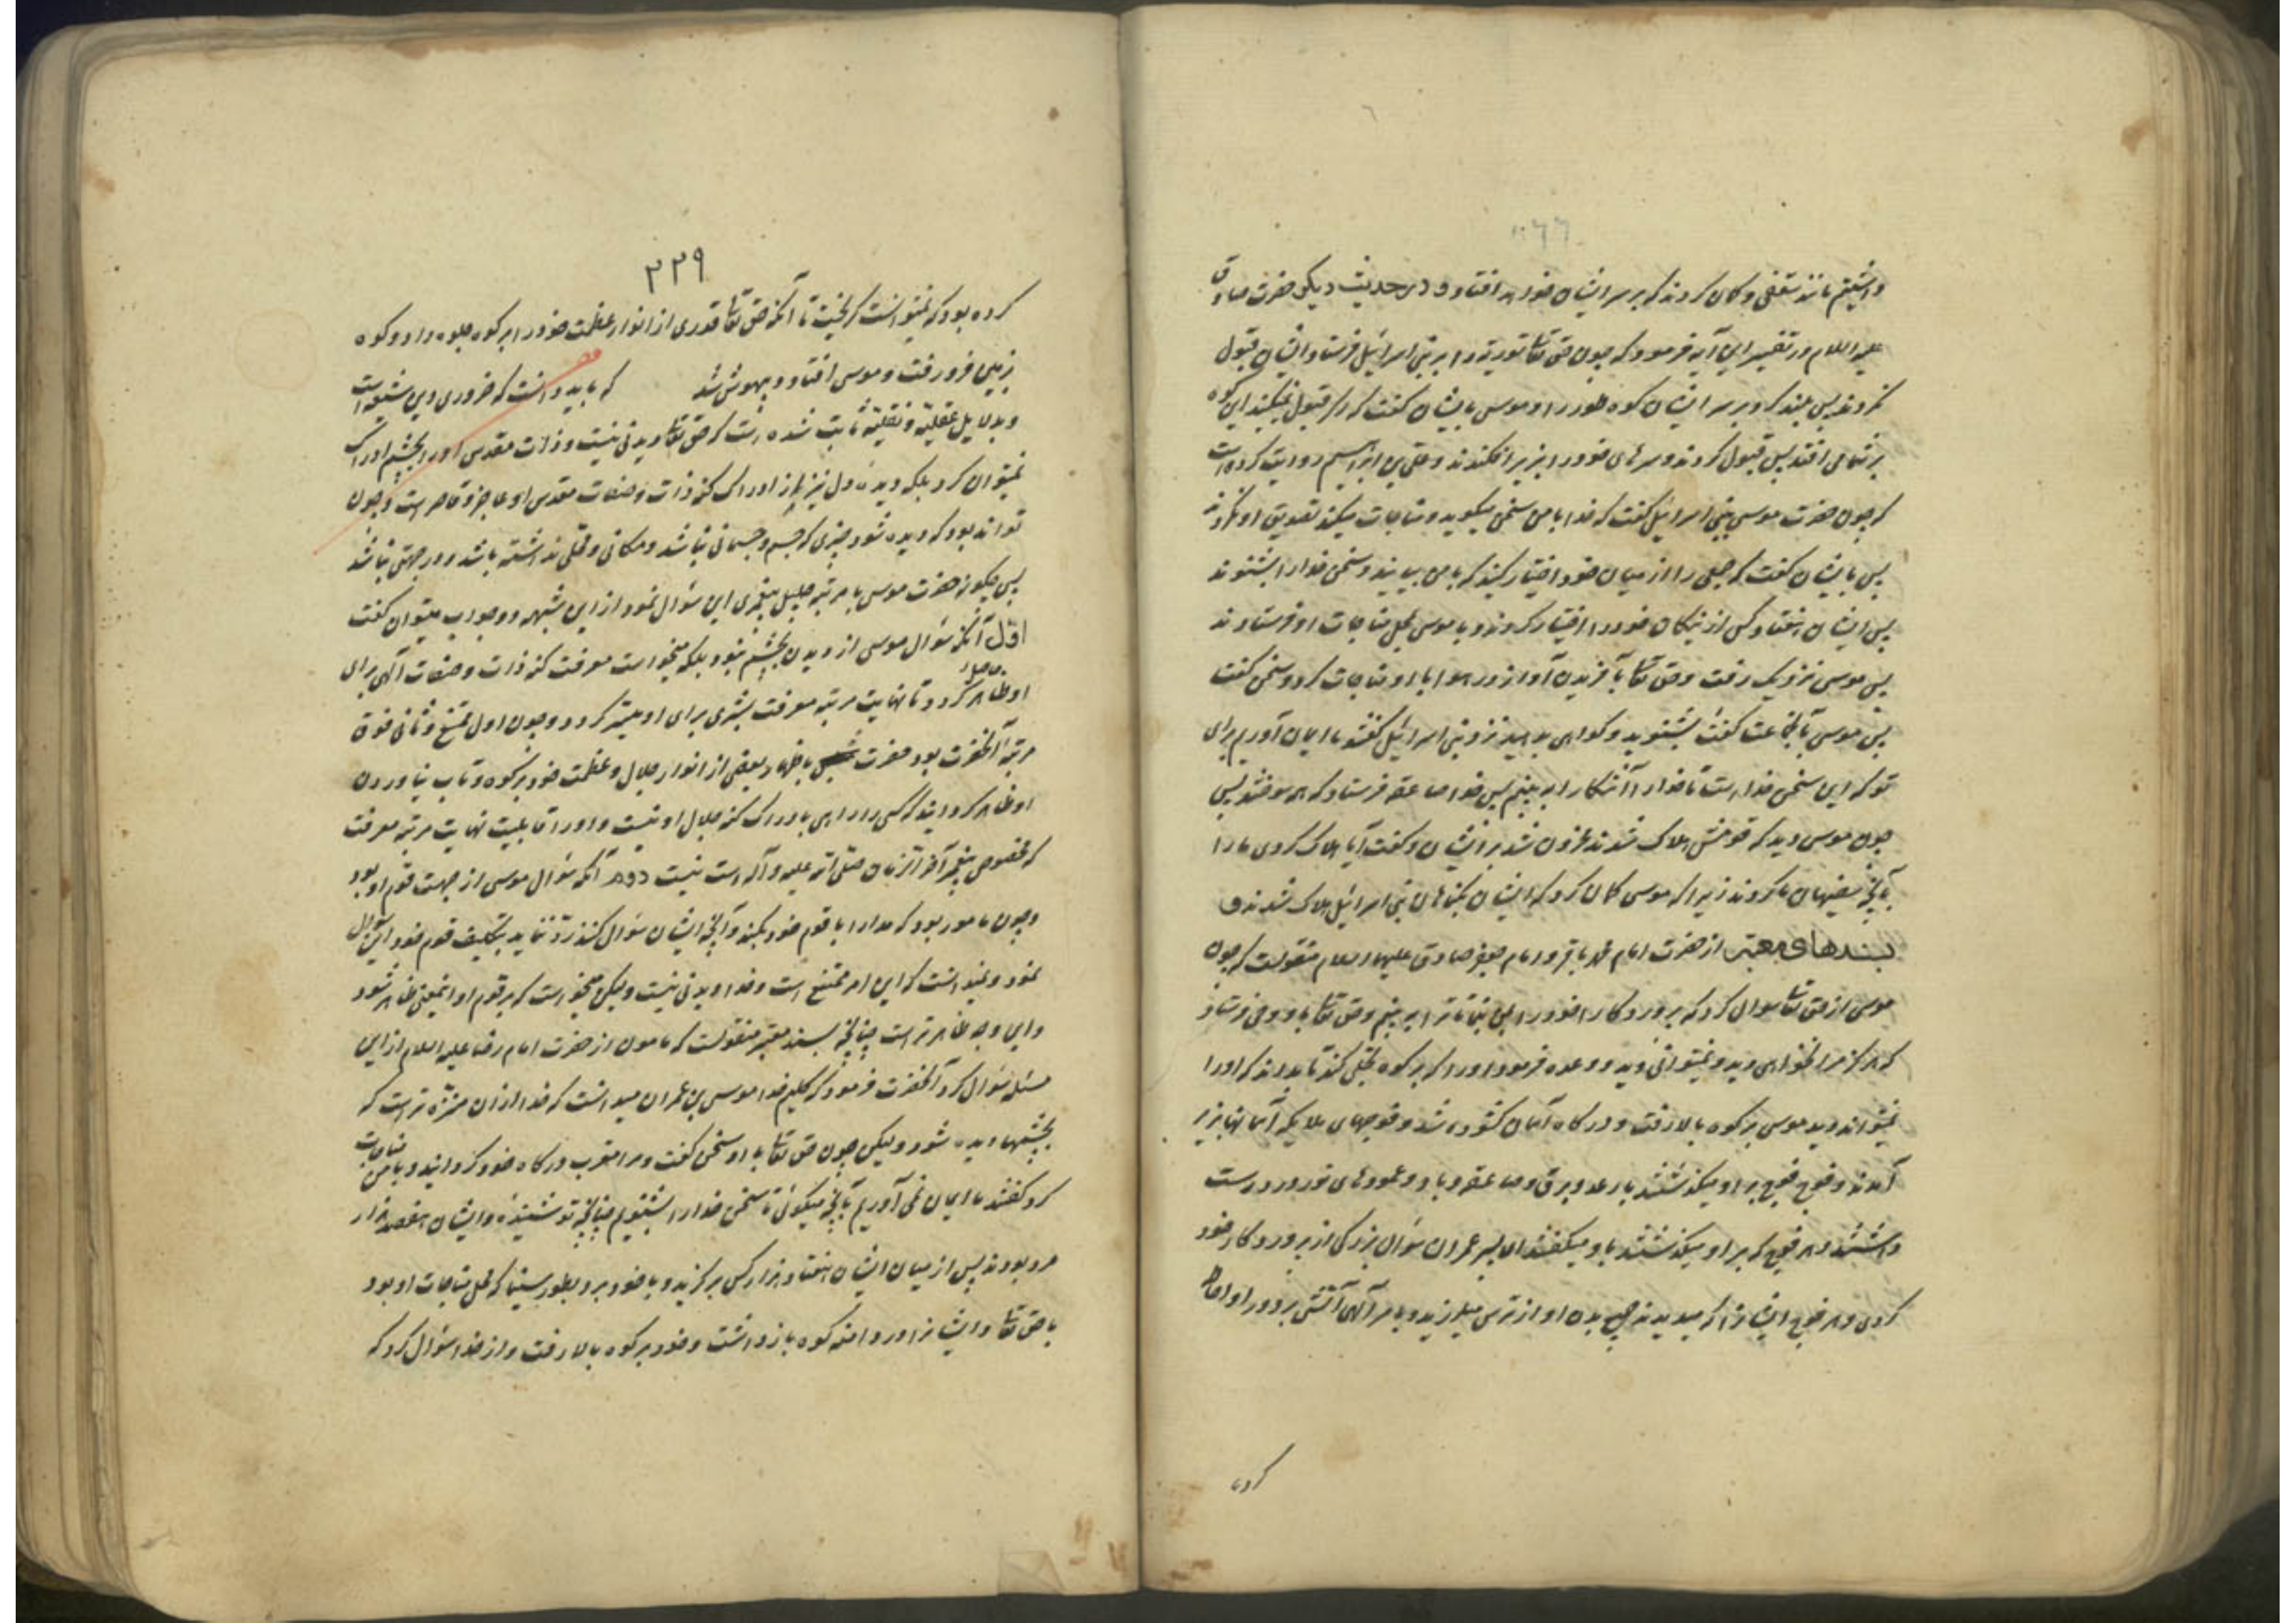 داشتیم مانند سقفی و گمان کردند که بر سر ایشان خواهد افتاد و در حدیث دیگر حضرت صادق
علیه السلام در تفسیر این آیه فرمود که چون حق تعالی توریة را بر بنی اسرائیل فرستاد ایشان قبول
نکردند پس بلند کرد بر سر ایشان کوه طور را و موسی بایشان گفت که اگر قبول نمیکنید این کوه
بر شما می افتد پس قبول کردند و سرهای خود را بزیر افکندند و علی بن ابراهیم روایت کرده است
که چون حضرت موسی ببنی اسرائیل گفت که خدا با من سخن میگوید و مناجات میکند تصدیق او نکردند
پس بایشان گفت که جمعی را از میان خود اختیار کنید که با من بیایند و سخن خدا را بشنوند
پس ایشان هفتاد کس از نیکان خود را اختیار کردند و با موسی بمحل مناجات او فرستادند
پس موسی نزدیک رفت و حق تعالی بآفریدن آواز در هوا با او مناجات کرد و سخن گفت
پس موسی بآنجماعت گفت بشنوید و گواهی بدهید نزد بنی اسرائیل گفتند ما ایمان نمی آوریم برای
تو که این سخن خداست تا خدا را آشکارا به بینیم پس خدا صاعقه فرستاد که همه سوختند پس
چون موسی دید که قومش هلاک شدند محزون شد بر ایشان و گفت آیا هلاک کردی ما را
بآنچه سفیهان ما کردند زیرا که موسی گمان کرد که ایشان بگناهان بنی اسرائیل هلاک شدند و
بسندهای معتبر از حضرت امام محمد باقر و امام جعفر صادق علیهما السلام منقولست که چون
موسی از حق تعالی سوال کرد که پروردگارا خود را بمن بنما تا ترا به بینم و حق تعالی باو وحی فرستاد
که هرگز مرا نخواهی دید و نمیتوانی دید و وعده فرمود او را که بر کوه تجلی کند تا بداند که او را
نمیتواند دید موسی بر کوه بالا رفت و درگاه آسمان گشوده شد و فوجهای ملایکه آسمانها بزیر
آمدند و فوج فوج بر او میگذشتند با رعد و برق و صاعقه و باد و عمودهای نور در دست
داشتند و هر فوج که بر او میگذشتند باو میگفتند ای پسر عمران سؤال بزرگی از پروردگار خود
کردی و هر فوج ایشانرا که میدیدند جمیع بدن او از ترس میلرزید و بامر الهی آتشی بر دور او احاطه
کرده
۲۲۹
کرده بود که نمیتوانست گریخت تا آنکه حق تعالی قدری از انوار عظمت خود را بر کوه جلوه داد و کوه
بزمین فرو رفت و موسی افتاد و بیهوش شد که باید دانست که ضروری دین شیعه است
و بدلایل عقلیه و نقلیه ثابت شده است که حق تعالی دیدنی نیست و ذات مقدس او را بچشم ادراک
نمیتوان کرد بلکه دیده دل نیز از ادراک کنه ذات و صفات مقدس او عاجز و قاصر است و چون
تواند بود که دیده شود چیزی که جسم و جسمانی نباشد و مکانی و محلی نداشته باشد و در جهتی نباشد
پس چگونه حضرت موسی با مرتبه جلیل پیغمبری این سؤال نمود از این شبهه دو جواب میتوان گفت
اول آنکه سؤال موسی از دیدن بچشم نبود بلکه میخواست معرفت کنه ذات و صفات الهی برای
او حاصل گردد تا نهایت مرتبه معرفت بشری برای او میسر گردد و چون اول ممتنع و ثانی فوق
مرتبه آنحضرت بود حضرت باظهار بعضی از انوار جلال و عظمت خود بر کوه و تاب نیاوردن
او ظاهر گردانید که کسی را راهی بادراک کنه جلال او نیست و او را قابلیت نهایت مرتبه معرفت
که مخصوص پیغمبر آخر الزمان صلی الله علیه و آله است نیست دوم آنکه سؤال موسی از جهت قوم او بود
و چون مامور بود که مدارا با قوم خود بکند و آنچه ایشان سؤال کنند رد ننماید بتکلیف قوم خود این سؤال
نمود و میدانست که این امر ممتنع است و خدا دیدنی نیست و لیکن میخواست که بر قوم او اینمعنی ظاهر شود
و این وجه ظاهرتر است چنانچه بسند معتبر منقولست که مامون از حضرت امام رضا علیه السلام از این
مسئله سؤال کرد آنحضرت فرمود که کلیم خدا موسی بن عمران میدانست که خدا از آن منزه تر است که
بچشمها دیده شود و لیکن چون حق تعالی با او سخن گفت و مرا مقرب درگاه خود گردانید و با من مناجات
کرد گفتند ما ایمان نمی آوریم بآنچه میگوئی تا سخن خدا را بشنویم چنانچه تو شنیده و ایشان هفتصد هزار
مرد بودند پس از میان ایشان هفتاد هزار کس برگزید و با خود برد بطور سینا که محل مناجات او بود
با حق تعالی و ایشانرا در دامنه کوه بازداشت و خود بر کوه بالا رفت و از خدا سؤال کرد که